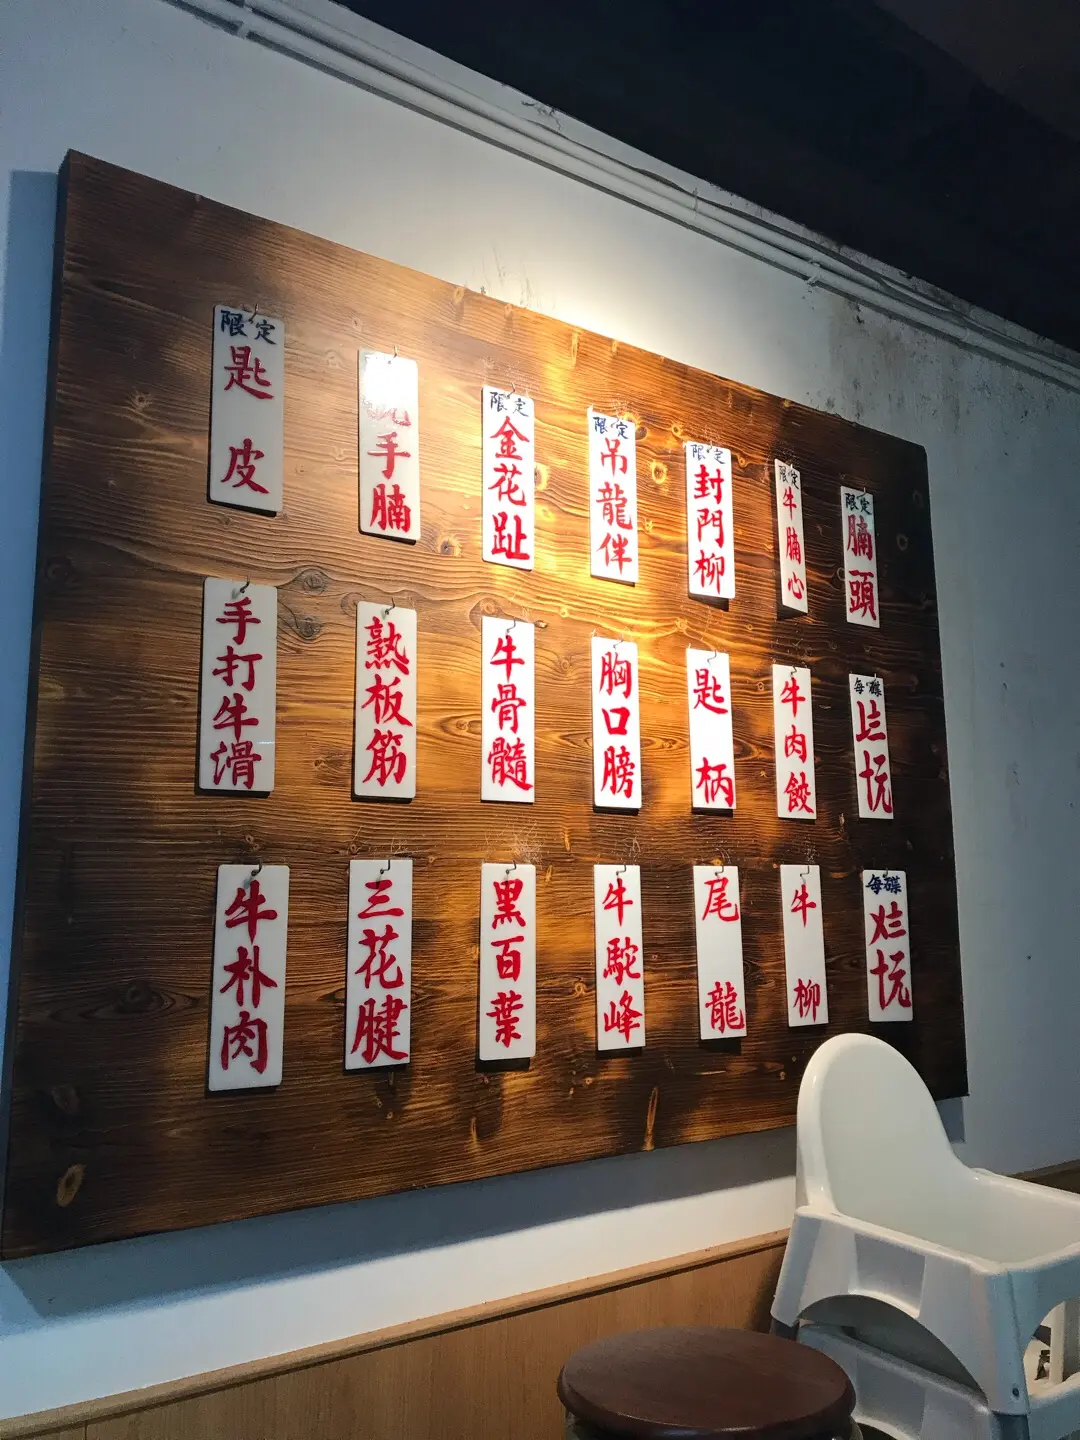 限定
匙皮
手腩
限定
金花趾
限定
吊龍伴
限定
封門柳
限定
牛腩心
限定
腩頭
手打牛滑
熟板筋
牛骨髓
胸口膀
匙柄
牛肉餃
每碟
牛朴肉
三花腱
黑百葉
牛駝峰
尾龍
牛柳
每碟